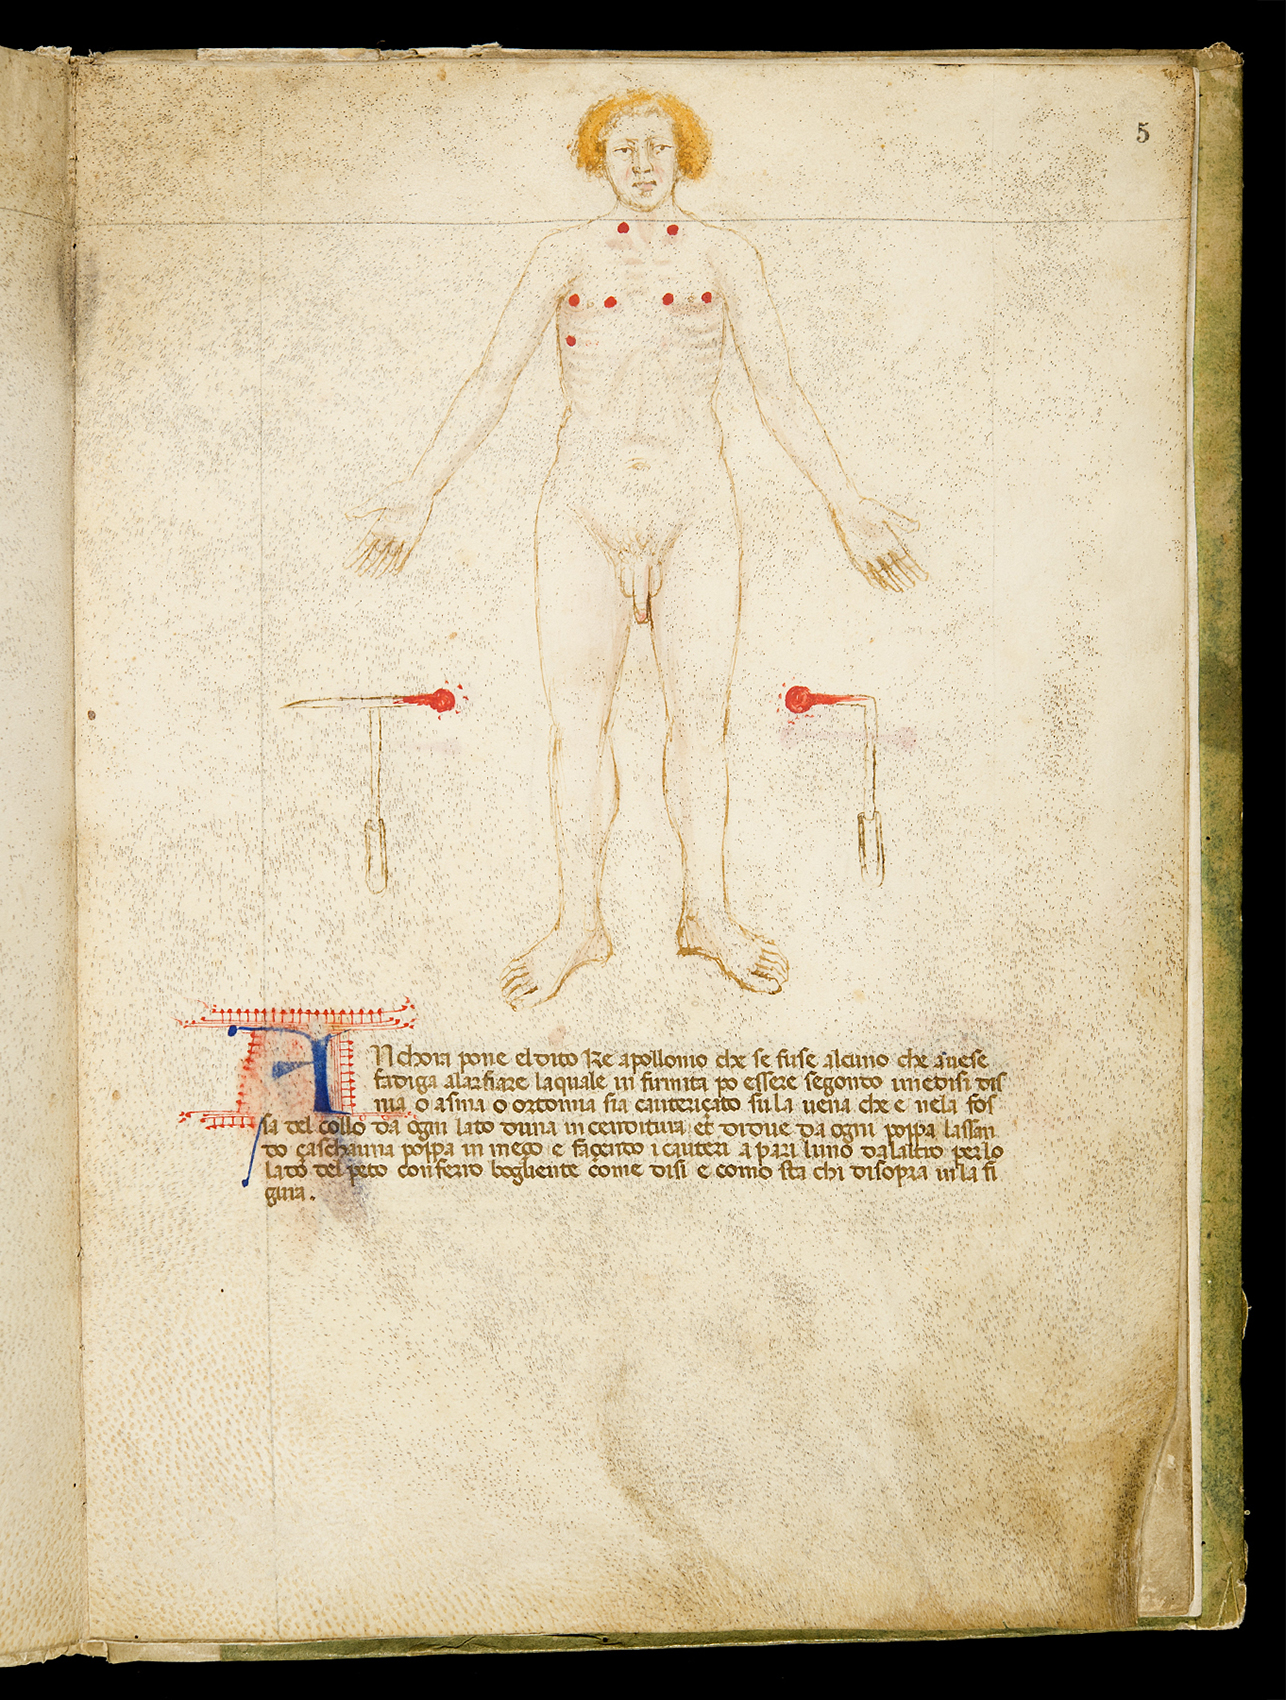 5
Anchora pone el dito Re apollonio che se fuse alcuno che avese
fadiga alarfiare laquale in firmita po essere segondo i medisi dis
nia o asma o ortomia sia cauteriçato su la vena che e nela fos
sa del collo da ogni lato duna in cenditura et didue da ogni poppa lassan
do çaschauna poppa in meço e façendo i cauteri a pari luno dalaltro per lo
lato del peto con ferro bogliente come disi e como sta chi disopra in la fi
gura.